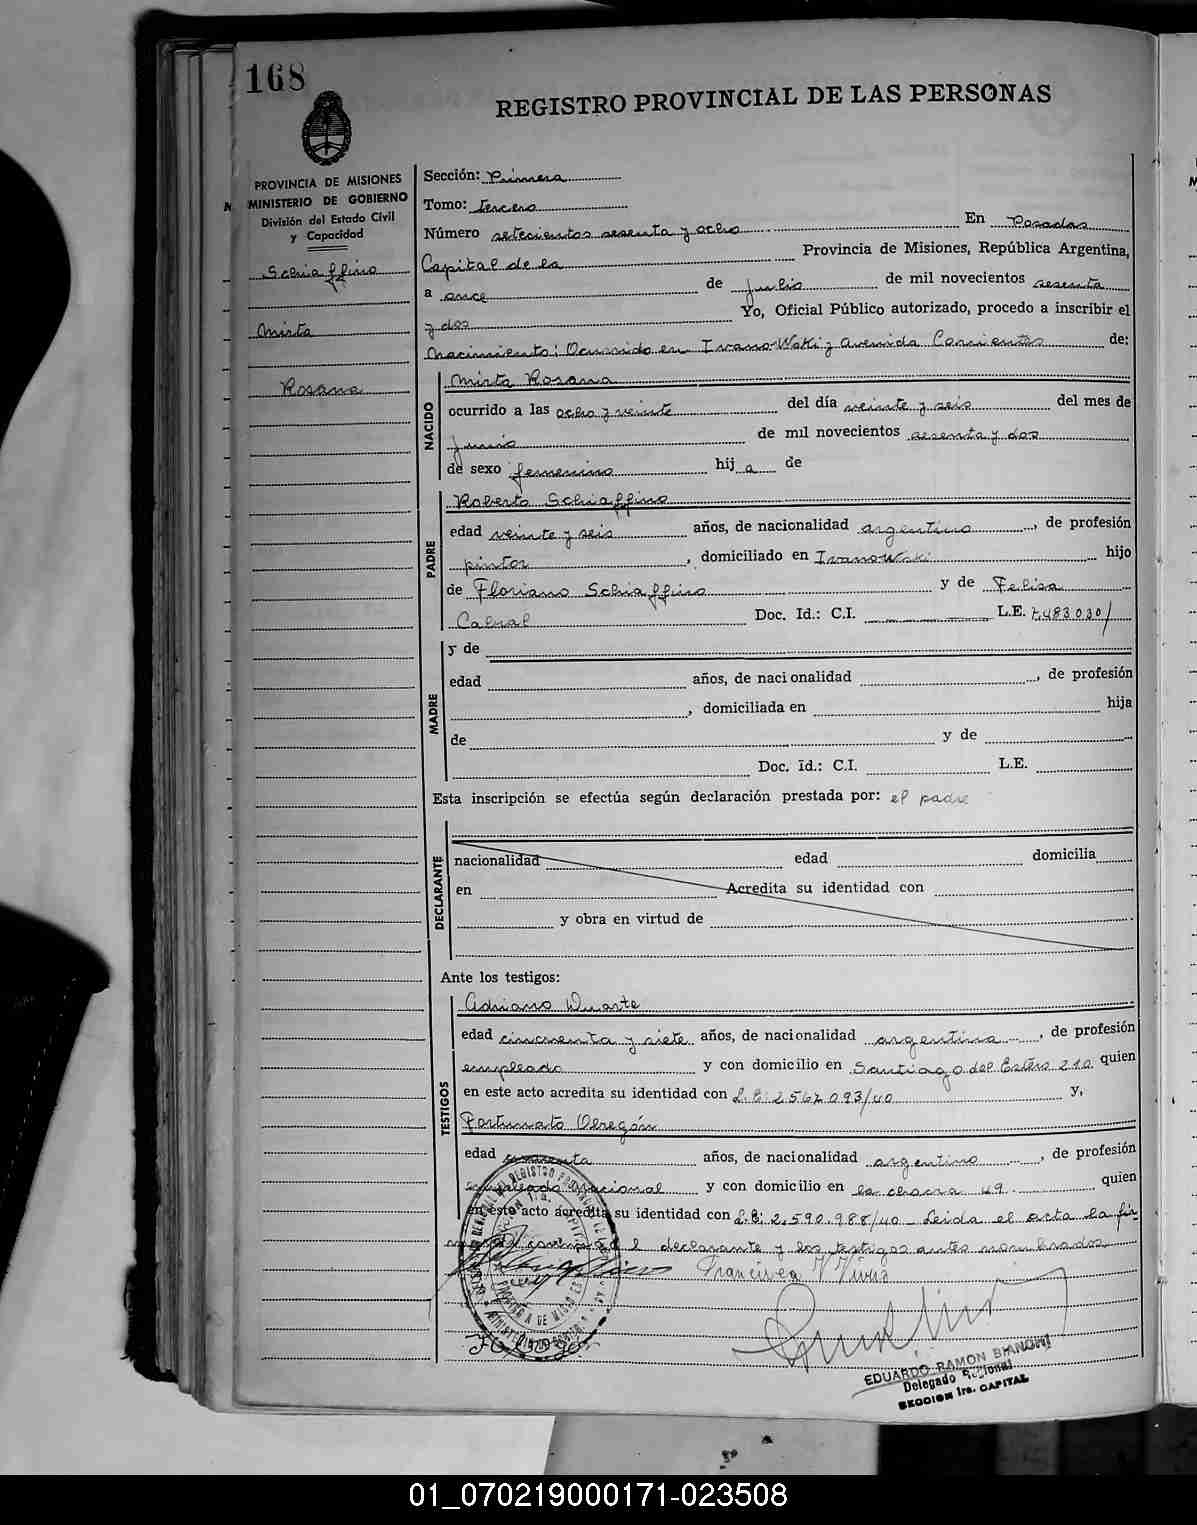 168
REGISTRO PROVINCIAL DE LAS PERSONAS
PROVINCIA DE MISIONES
MINISTERIO DE GOBIERNO
División del Estado Civil
y Capacidad
Schiaffino
Mirta
Rosana
Sección: Primera
Tomo: tercero
Número setecientos sesenta y ocho En Posadas
Capital de la Provincia de Misiones, República Argentina,
a once de Julio de mil novecientos sesenta
y dos Yo, Oficial Público autorizado, procedo a inscribir el
Nacimiento: Ocurrido en Ivanowski y avenida Corrientes de:
NACIDO
Mirta Rosana
ocurrido a las ocho y veinte del día veinte y seis del mes de
Junio de mil novecientos sesenta y dos
de sexo femenino hij a de
PADRE
Roberto Schiaffino
edad veinte y seis años, de nacionalidad argentino, de profesión
pintor, domiciliado en Ivanowski hijo
de Floriano Schiaffino y de Felisa
Cabral Doc. Id.: C.I. L.E. 7.483.030/
MADRE
y de
edad años, de nacionalidad , de profesión
, domiciliada en hija
de y de
Doc. Id.: C.I. L.E.
Esta inscripción se efectúa según declaración prestada por: el padre
DECLARANTE
nacionalidad edad domicilia
en Acredita su identidad con
y obra en virtud de
Ante los testigos:
TESTIGOS
Adriano Duarte
edad cincuenta y siete años, de nacionalidad argentina, de profesión
empleado y con domicilio en Santiago del Estero 210 quien
en este acto acredita su identidad con L.E: 2.567.093/40 y,
Fortunato Obregón
edad años, de nacionalidad argentino, de profesión
empleado nacional y con domicilio en la chacra 49 quien
en este acto acredita su identidad con L.E: 2.590.988/40 - Leida el acta la fir-
el declarante y los testigos antes nombrados
EDUARDO RAMON BIANCHI
Delegado Regional
SECCION 1ra. CAPITAL
01_070219000171-023508